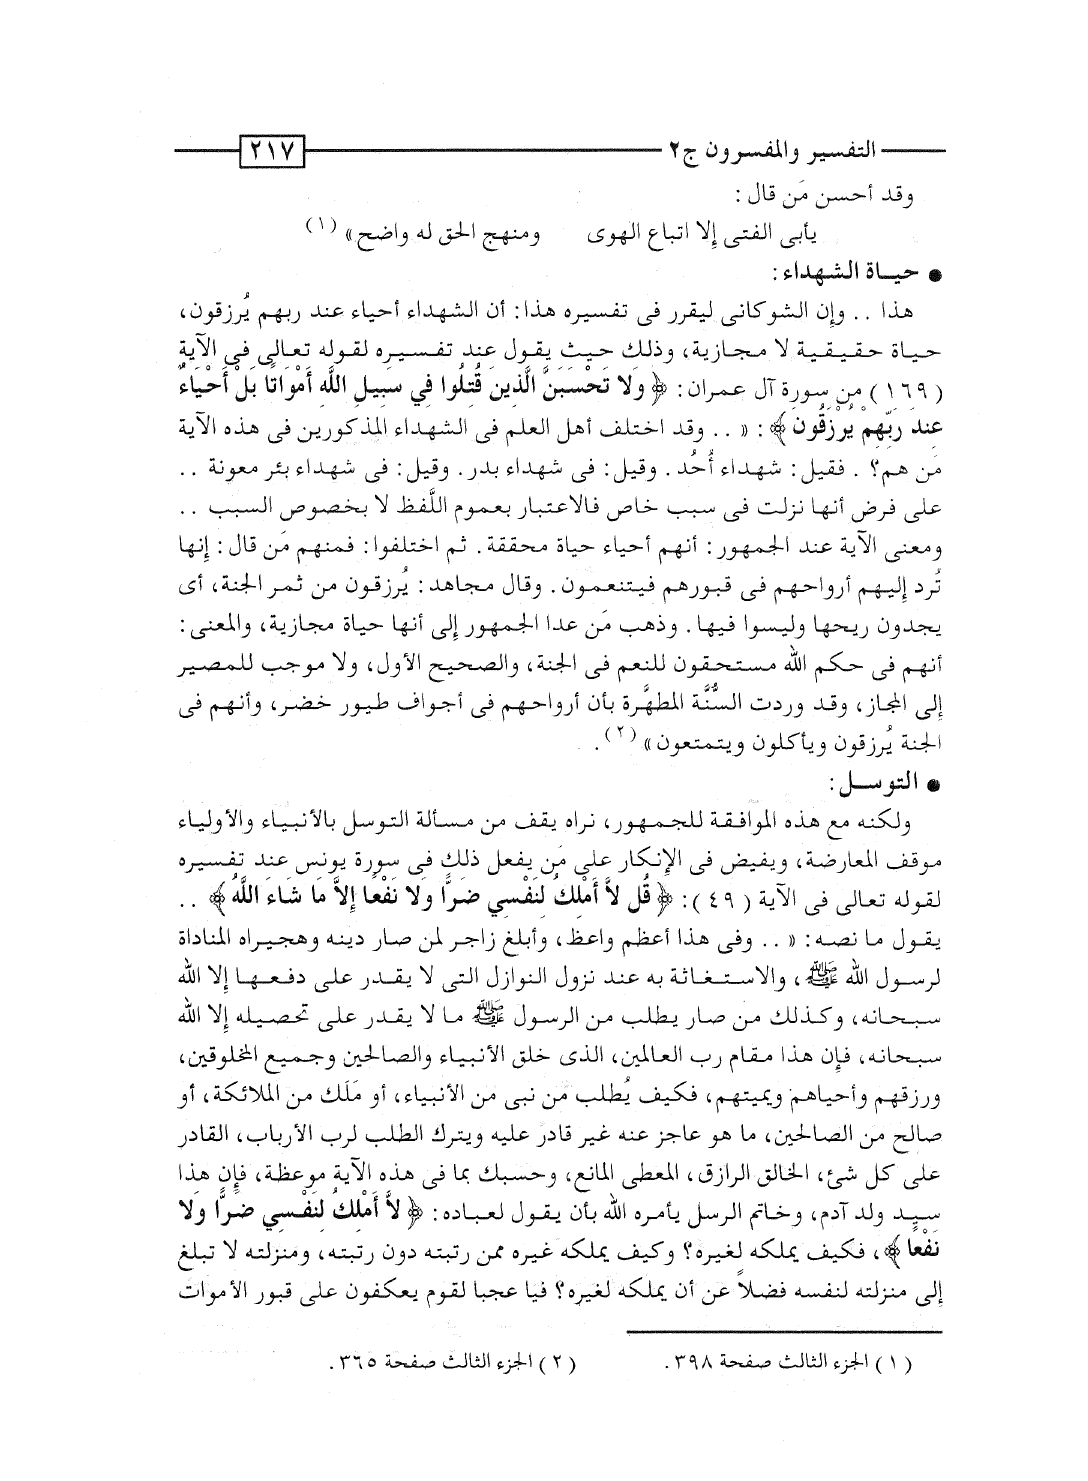 التفسير والمفسرون ج٢ ٢١٧
وقد أحسن مَن قال :
يأبى الفتى إلا اتباع الهوى ومنهج الحق له واضح» (١)
● حياة الشهداء:
هذا .. وإن الشوكانى ليقرر فى تفسيره هذا: أن الشهداء أحياء عند ربهم يُرزقون،
حياة حقيقية لا مجازية، وذلك حيث يقول عند تفسيره لقوله تعالى فى الآية
(١٦٩) من سورة آل عمران: ﴿ وَلا تَحْسَبَنَّ الَّذِينَ قُتِلُوا فِي سَبِيلِ اللَّهِ أَمْوَاتًا بَلْ أَحْيَاءٌ
عِندَ رَبِّهِمْ يُرْزَقُونَ ﴾: « .. وقد اختلف أهل العلم فى الشهداء المذكورين فى هذه الآية
مَن هم؟ . فقيل: شهداء أُحُد. وقيل: فى شهداء بدر. وقيل: فى شهداء بئر معونة ..
على فرض أنها نزلت فى سبب خاص فالاعتبار بعموم اللَّفظ لا بخصوص السبب ..
ومعنى الآية عند الجمهور: أنهم أحياء حياة محققة. ثم اختلفوا: فمنهم مَن قال: إنها
تُرد إليهم أرواحهم فى قبورهم فيتنعمون. وقال مجاهد: يُرزقون من ثمر الجنة، أى
يجدون ريحها وليسوا فيها. وذهب مَن عدا الجمهور إلى أنها حياة مجازية، والمعنى:
أنهم فى حكم الله مستحقون للنعم فى الجنة، والصحيح الأول، ولا موجب للمصير
إلى المجاز، وقد وردت السُّنَّة المطهَّرة بأن أرواحهم فى أجواف طيور خضر، وأنهم فى
الجنة يُرزقون ويأكلون ويتمتعون» (٢).
● التوسل:
ولكنه مع هذه الموافقة للجمهور، نراه يقف من مسألة التوسل بالأنبياء والأولياء
موقف المعارضة، ويفيض فى الإنكار على مَن يفعل ذلك فى سورة يونس عند تفسيره
لقوله تعالى فى الآية (٤٩): ﴿ قُل لاَّ أَمْلِكُ لِنَفْسِي ضَرًّا وَلا نَفْعًا إِلاَّ مَا شَاءَ اللَّهُ ﴾ ..
يقول ما نصه: « .. وفى هذا أعظم واعظ، وأبلغ زاجر لمن صار دينه وهجيراه المناداة
لرسول الله ﷺ، والاستغاثة به عند نزول النوازل التى لا يقدر على دفعها إلا الله
سبحانه، وكذلك من صار يطلب من الرسول ﷺ ما لا يقدر على تحصيله إلا الله
سبحانه، فإن هذا مقام رب العالمين، الذى خلق الأنبياء والصالحين وجميع المخلوقين،
ورزقهم وأحياهم ويميتهم، فكيف يُطلب مَن نبى من الأنبياء، أو مَلَك من الملائكة، أو
صالح من الصالحين، ما هو عاجز عنه غير قادر عليه ويترك الطلب لرب الأرباب، القادر
على كل شئ، الخالق الرازق، المعطى المانع، وحسبك بما فى هذه الآية موعظة، فإن هذا
سيد ولد آدم، وخاتم الرسل يأمره الله بأن يقول لعباده: ﴿ لاَّ أَمْلِكُ لِنَفْسِي ضَرًّا وَلا
نَفْعًا ﴾، فكيف يملكه لغيره؟ وكيف يملكه غيره ممن رتبته دون رتبته، ومنزلته لا تبلغ
إلى منزلته لنفسه فضلاً عن أن يملكه لغيره؟ فيا عجبا لقوم يعكفون على قبور الأموات
(١) الجزء الثالث صفحة ٣٩٨. (٢) الجزء الثالث صفحة ٣٦٥.